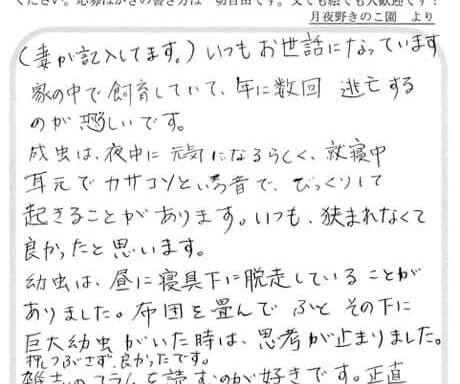 ください。応募はがきの書き方は一切自由です。文でも絵でも大歓迎です！
月夜野きのこ園　より
(妻が記入してます。)いつもお世話になっています
家の中で飼育していて、年に数回 逃亡する
のが恐しいです。
成虫は、夜中に元気になるらしく、就寝中
耳元でカサコソという音で、びっくりして
起きることがあります。いつも、挟まれなくて
良かったと思います。
幼虫は、昼に寝具下に脱走していることが
ありました。布団を畳んで ふと その下に
巨大幼虫がいた時は、思考が止まりました。
押しつぶさず、良かったです。
雑誌のコラムを読むのが好きです。正直